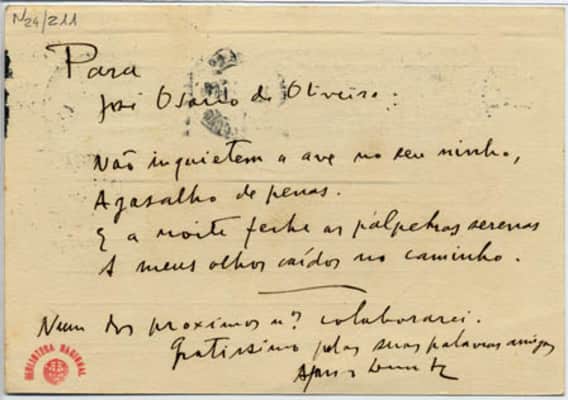 N24/211
Para
José Osório de Oliveira:
Não inquietem a ave no seu ninho,
Agasalho de penas.
E a noite feche as pálpebras serenas
A meus olhos caídos no caminho.
Num dos proximos nos colaborarei.
Gratissimo pelas suas palavras amigas
Afonso Duarte
BIBLIOTECA NACIONAL